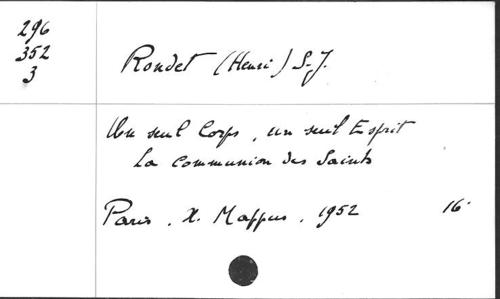 296
352
3
Rondet (Henri) S.J.
Un seul Corps, un seul Esprit
La Communion des Saints
Paris. X. Mappus. 1952 16°